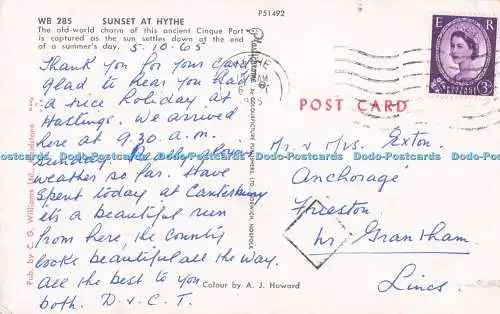 WB 285 SUNSET AT HYTHE
P51492
The old-world charm of this ancient Cinque Port
is captured as the sun settles down at the end
of a summer's day.
5.10.65
Thank you for your card
glad to hear you had
a nice holiday at
Hastings. We arrived
here at 9.30 a.m.
Sunday. Really glorious
weather so far. Have
spent today at Canterbury
its a beautiful run
from here, the country
looks beautiful all the way.
all the best to you
both. D. & C. T.
Colour by A. J. Howard
Pub. by C. G. Williams Ltd., Maidstone
POST CARD
E R
POSTAGE REVENUE
3D
Mr. & Mrs. Exton.
Anchorage
Frieston
Nr Grantham.
Lincs.
Dodo-Postcards Dodo-Postcards Dodo-Postcards Dodo-Postcards Dodo-Postcards Dodo-Postcards